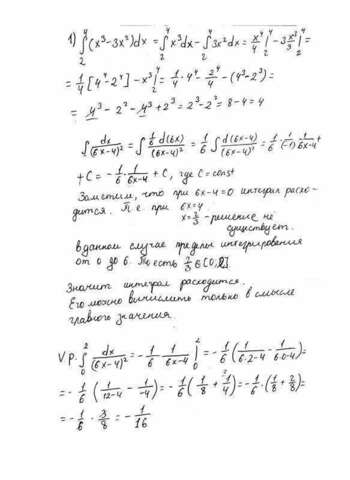 1) ∫₂⁴(x³-3x²)dx = ∫₂⁴x³dx - ∫₂⁴3x²dx = x⁴/4 |₂⁴ - 3x³/3 |₂⁴ =
= 1/4 [4⁴-2⁴] - x³|₂⁴ = 1/4·4⁴ - 2⁴/4 - (4³-2³) =
= 4³ - 2² - 4³ + 2³ = 2³ - 2² = 8-4 = 4
∫ dx/(6x-4)² = ∫ 1/6 d(6x)/(6x-4)² = 1/6 ∫ d(6x-4)/(6x-4)² = 1/6 · 1/(-1) · 1/(6x-4) +
+C = - 1/6 · 1/(6x-4) + C, где C = const
Заметим, что при 6x-4=0 интеграл расхо-
дится. Т.е при 6x=4
x = 2/3 - решение не
существует.
В данном случае пределы интегрирования
от 0 до 6. То есть 2/3 ∈ [0,2].
Значит интеграл расходится.
Его можно вычислить только в смысле
главного значения.
V.p. ∫₀² dx/(6x-4)² = - 1/6 · 1/(6x-4) |₀² = - 1/6 (1/(6·2-4) - 1/(6·0-4)) =
= - 1/6 (1/(12-4) - 1/(-4)) = - 1/6 (1/8 + 1/4) = - 1/6 · (1/8 + 2/8) =
= - 1/6 · 3/8 = - 1/16